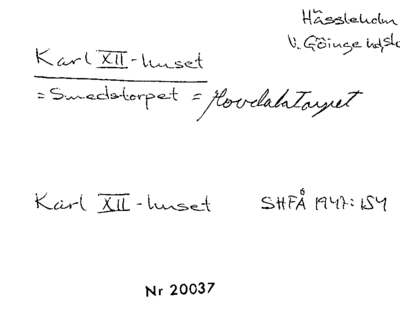 Hässleholm
V. Göinge
Karl XII-huset
= Smedstorpet = Hovdalatorpet
Karl XII-huset SHFÅ 1947:154
Nr 20037